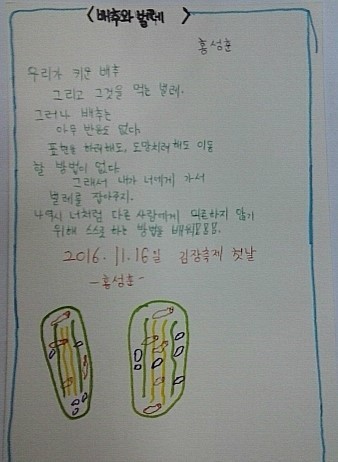 <배추와 벌레>
홍성훈
우리가 키운 배추
그리고 그것을 먹는 벌레.
그러나 배추는
아무 반응도 없다.
표현을 하려해도, 도망치려해도 이동
할 방법이 없다
그래서 내가 너에게 가서
벌레를 잡아주지.
나 역시 너처럼 다른 사람에게 의존하지 않기
위해 스스로 하는 방법을 배워
2016.11.16일 김장축제 첫날
-홍성훈-